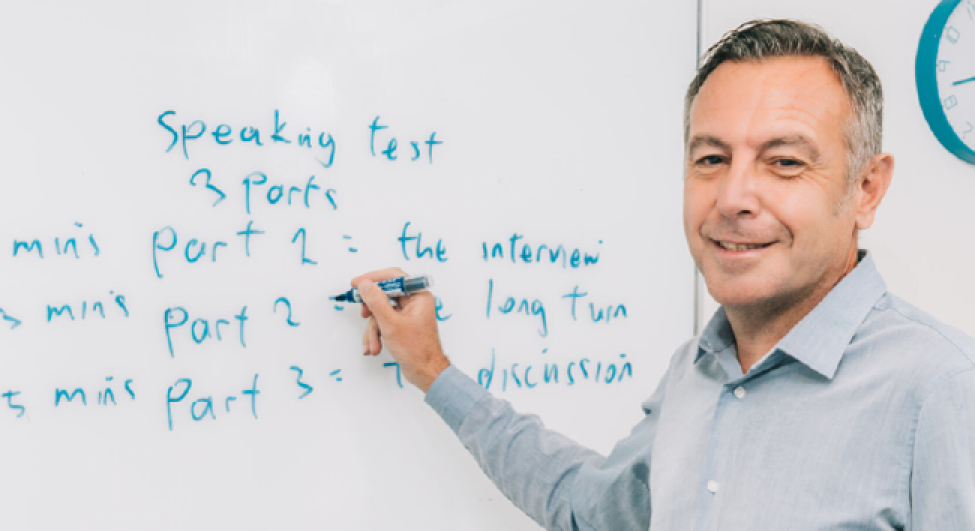 Speaking test
3 Parts
min's Part 1 = the interview
3 min's Part 2 = long turn
5 min's Part 3 = discussion